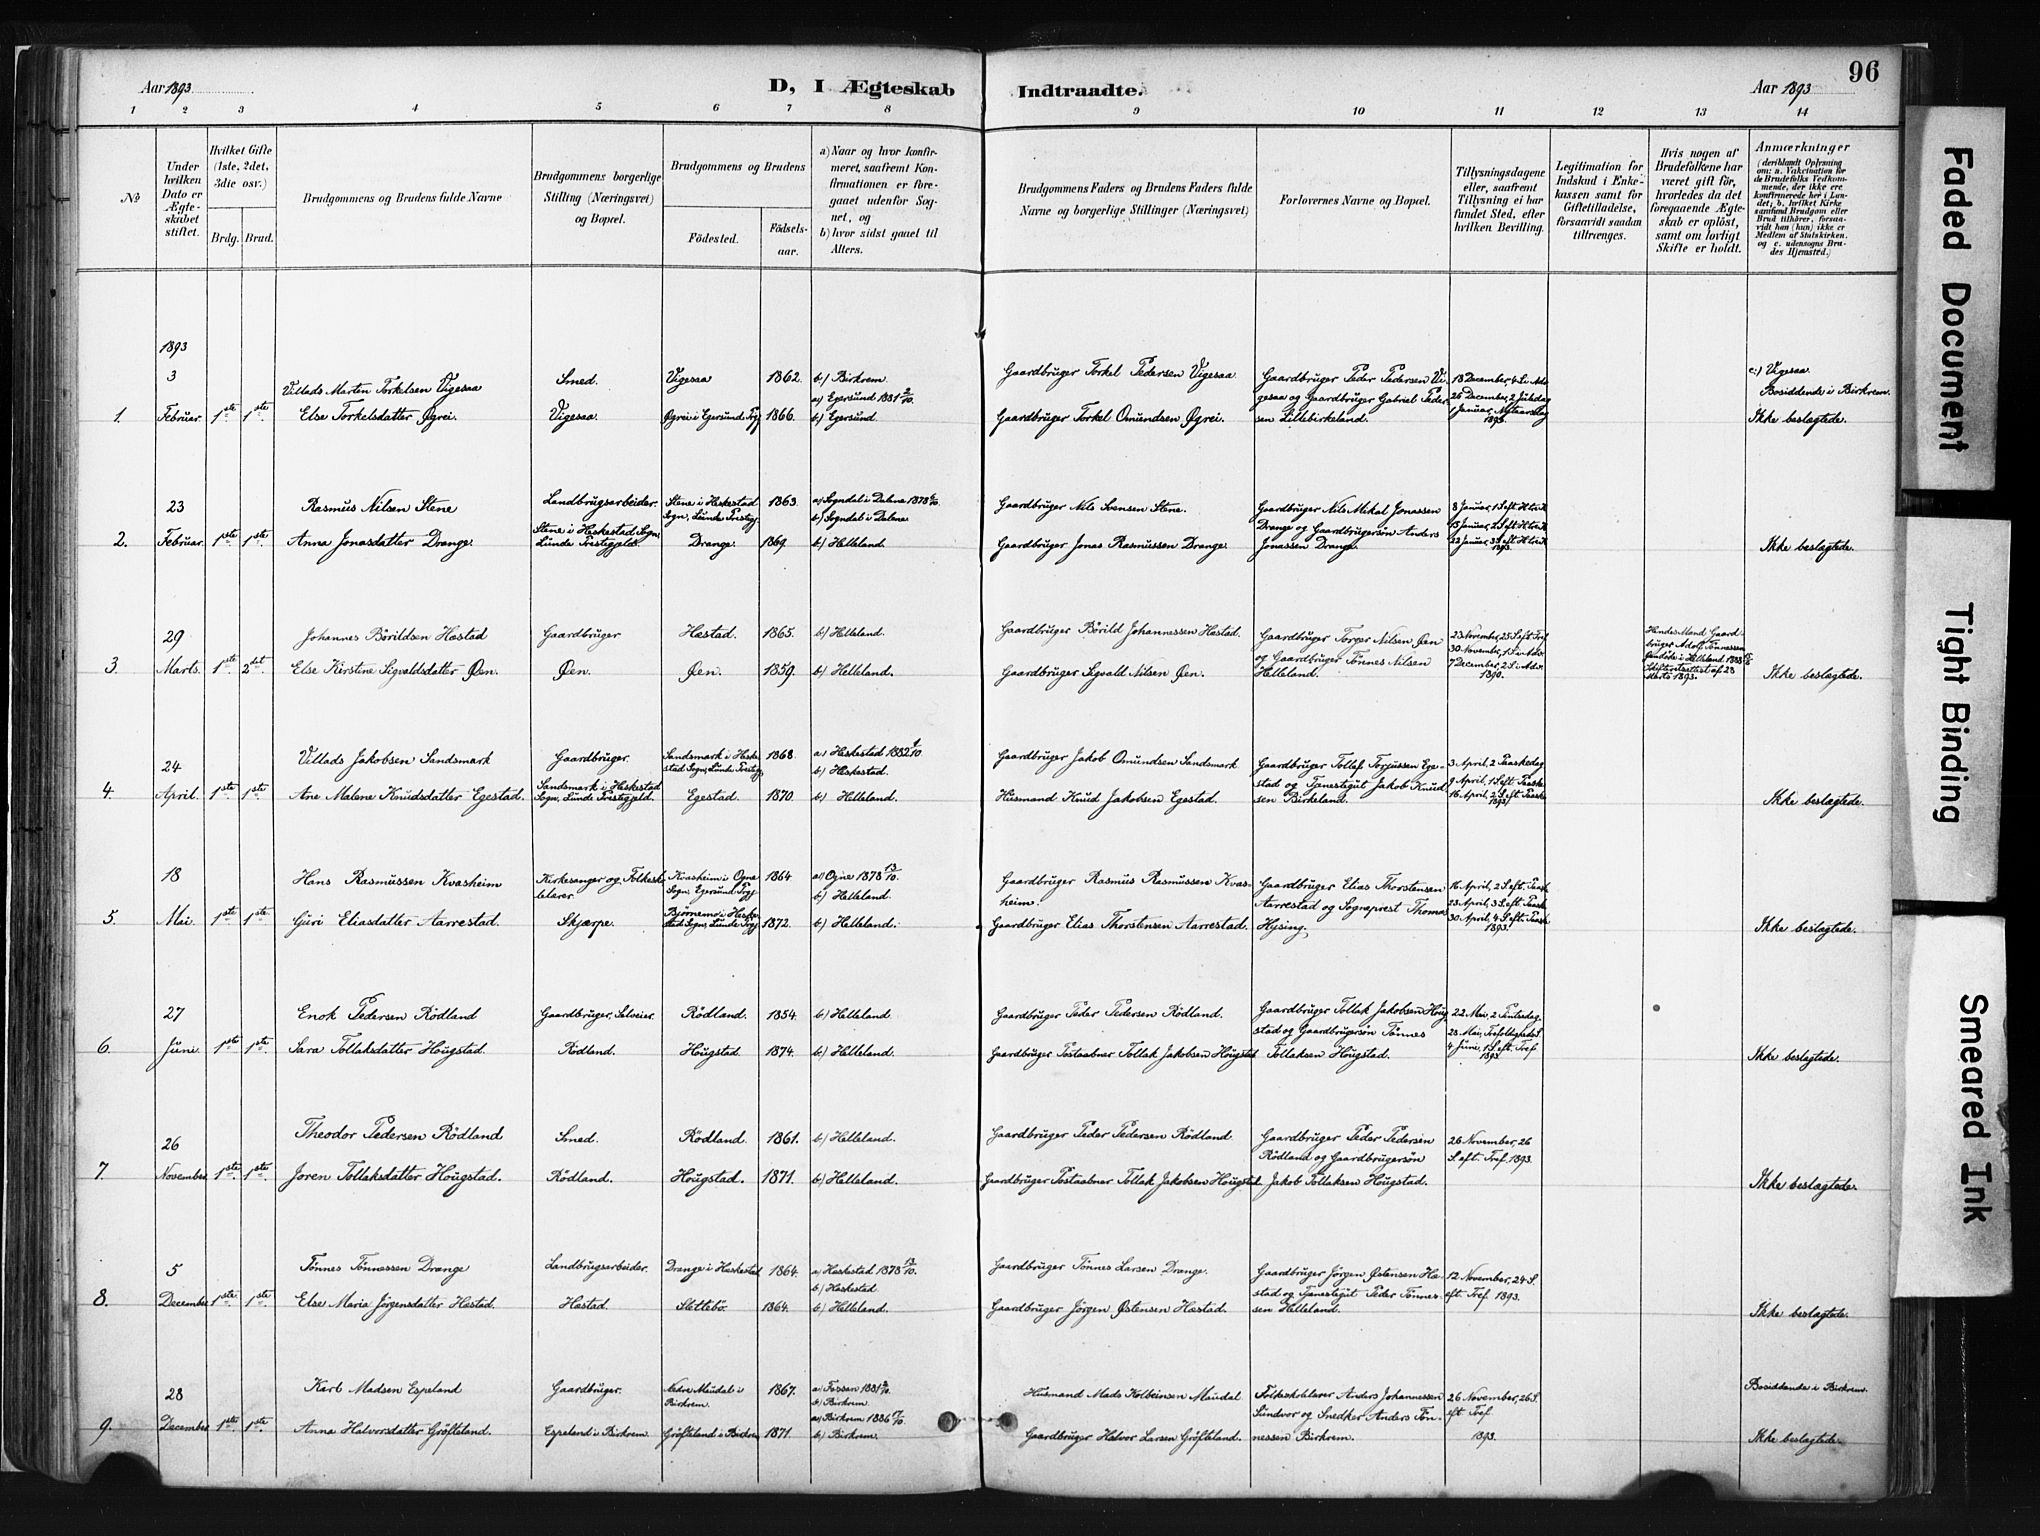 96
Aar 1893
D, I Ægteskab Indtraadte.
Aar 1893
1 2 3 4 5 6 7 8 9 10 11 12 13 14
No
Under hvilken Dato er Ægteskabet stiftet.
Hvilket Gifte (1ste, 2det, 3die osv.)
Brdg. Brud.
Brudgommens og Brudens fulde Navne
Brudgommens borgerlige Stilling (Næringsvei) og Bopæl.
Brudgommens og Brudens
Födested.
Födsels-aar.
a) Naar og hvor konfir-
meret, saafremt Kon-
firmationen er fore-
gaaet udenfor Sog-
net, og
b) hvor sidst gaaet til
Alters.
Brudgommens Faders og Brudens Faders fulde
Navne og borgerlige Stillinger (Næringsvei)
Forlovernes Navne og Bopæl.
Tillysningsdagene
eller, saafremt
Tillysning ei har
fundet Sted, efter
hvilken Bevilling.
Legitimation for
Indskud i Enke-
kassen samt for
Giftetilladelse,
forsaavidt saadan
tiltrænges.
Hvis nogen af
Brudefolkene har
været gift för,
hvorledes da det
foregaaende Ægte-
skab er oplöst,
samt om lovligt
Skifte er holdt.
Anmærkninger
(deriblandt Oplysning
om: a. Vakcination for
de Brudefolks Vedkom-
mende, der ikke ere
konfirmerede her i Lan-
det; b. hvilket Kirke
samfund Brudgom eller
Brud tilhörer, forsaa-
vidt han (hun) ikke er
Medlem af Statskirken.
og c. udensogns Bru-
des Hjemsted.)
1893
1. 3 Februar. 1ste 1ste
Villads Marten Torkelsen Vigesaa
Else Torkelsdatter Øgrei.
Smed.
Vigesaa.
Vigesaa 1862. b) Birkrem
Øgrei i Egersund 1866. a) Egersund 1881 2/10.
b) Egersund.
Gaardbruger Torkel Pedersen Vigesaa
Gaardbruger Torkel Omundsen Øgrei.
Gaardbruger Peder Pedersen Vi-
gesaa og Gaardbruger Gabriel Peder-
sen Lillebirkeland.
18 December, 4 S. i Adv.
26 December, 2 Juledag
1 Januar, Nytaarsdag
1893.
c.) Vigesaa.
Bosiddende i Birkrem.
Ikke beslægtede.
2. 23 Februar. 1ste 1ste
Rasmus Nilsen Stene
Anna Jonasdatter Drange.
Landbrugsarbeider.
Stene i Heskestad Sogn,
Lunde Prestegjeld.
Stene i Heskestad
Sogn, Lunde Prestegj. 1863
Drange. 1869
a) Sogndal i Dalene 1878
b) Sogndal i Dalene
b) Helleland
Gaardbruger Nils Svensen Stene.
Gaardbruger Jonas Rasmussen Drange.
Gaardbruger Nils Mikal Jonassen
Drange og Gaardbrugersön Anders
Jonassen Drange.
8 Januar, 1 S. eft. H. tre K.
15 Januar, 2 S. eft. H. tre K.
22 Januar, 3 S. eft. H. tre K.
1893.
Ikke beslægtede.
3. 29 Marts. 1ste 2det
Johannes Börildsen Hæstad
Else Kirstine Sigvaldsdatter Øen.
Gaardbruger
Øen.
Hæstad. 1865. b) Helleland.
Øen. 1859. b) Helleland.
Gaardbruger Börild Johannessen Hæstad.
Gaardbruger Sigvald Nilsen Øen.
Gaardbruger Torger Nilsen Øen
og Gaardbruger Tönnes Nilsen
Helleland.
23 November, 25 S. eft. Tref.
30 November, 1 S. i Adv.
7 December, 2 S. i Adv.
1890.
Hendes Mand Gaard-
bruger Adolf Tönnessen
döde i Helleland 1888
Skifteretsattest af 28
Marts 1893.
Ikke beslægtede.
4. 24 April. 1ste 1ste
Villads Jakobsen Sandsmark
Ane Malene Knudsdatter Egestad.
Gaardbruger.
Sandsmark i Heskestad
Sogn, Lunde Prestegjeld.
Sandsmark i Heske-
stad Sogn, Lunde Prestegj. 1868
Egestad. 1870
a) Heskestad 1882 1/10
b) Heskestad.
b) Helleland.
Gaardbruger Jakob Omundsen Sandsmark
Husmand Knud Jakobsen Egestad.
Gaardbruger Tollef Torjussen Ege-
stad og Tjenestegut Jakob Knud-
sen Birkeland.
3 April, 2 Paaskedag
9 April, 1 S. eft. Paaske
16 April, 2 S. eft. Paaske
1893
Ikke beslægtede.
5. 18 Mai. 1ste 1ste
Hans Rasmussen Kvasheim
Guri Eliasdatter Aarrestad.
Kirkesanger og Folkesko-
lelærer.
Skjærpe.
Kvasheim i Ogne
Sogn, Egersund Prgj. 1864.
Bjørnemo i Heske-
stad Sogn, Lunde Prgj. 1872.
a) Ogne 1878 13/10.
b) Helleland.
b) Helleland.
Gaardbruger Rasmus Rasmussen Kvas-
heim.
Gaardbruger Elias Thorstensen Aarrestad.
Gaardbruger Elias Thorstensen
Aarrestad og Sogneprest Thomas
Hysing.
16 April, 2 S. eft. Paaske
23 April, 3 S. eft. Paaske
30 April, 4 S. eft. Paaske
1893.
Ikke beslægtede.
6. 27 Juni. 1ste 1ste
Enok Pedersen Rödland
Sara Tollaksdatter Hougstad.
Gaardbruger, Selveier.
Rödland.
Rödland. 1854. b) Helleland.
Hougstad. 1874. b) Helleland.
Gaardbruger Peder Pedersen Rödland.
Gaardbruger Postaabner Tollak Jakobsen Hougstad
Gaardbruger Tollak Jakobsen Houg-
stad og Gaardbrugersön Tönnes
Tollaksen Hougstad.
22 Mai, 2 Pintsedag.
28 Mai, Trefoldigheds S.
4 Juni, 1 S. eft. Tref.
1893.
Ikke beslægtede.
7. 26 November. 1ste 1ste
Theodor Pedersen Rödland
Joren Tollaksdatter Hougstad.
Smed.
Rödland.
Rödland. 1861. b) Helleland.
Hougstad. 1871. b) Helleland.
Gaardbruger Peder Pedersen Rödland.
Gaardbruger Postaabner Tollak Jakobsen Hougstad
Gaardbruger Peder Pedersen
Rödland og Gaardbrugersön
Jakob Tollaksen Hougstad.
26 November, 26
S. eft. Tref. 1893.
Ikke beslægtede.
8. 5 December 1ste 1ste
Tönnes Tönnessen Drange
Else Maria Jörgensdatter Hæstad.
Landbrugsarbeider.
Hæstad.
Drange i Heskestad 1864.
Slettebø. 1864.
a) Heskestad 1878 13/10.
b) Heskestad
b) Helleland.
Gaardbruger Tönnes Larsen Drange.
Gaardbruger Jörgen Østensen Hæstad.
Gaardbruger Jörgen Østensen Hæ-
stad og Tjenestegut Peder Tönnes-
sen Helleland.
12 November, 24 S.
eft. Tref. 1893.
Ikke beslægtede.
9. 28 December 1ste 1ste
Karl Madsen Espeland
Anna Halvorsdatter Gröfteland.
Gaardbruger.
Espeland i Birkrem.
Nedre Maudal i
Birkrem. 1867.
Gröfteland i Birkrem 1871.
a) Fossan 1881
b) Birkrem.
a) Birkrem 1886
b) Birkrem.
Husmand Mads Kolbeinsen Maudal
Gaardbruger Halvor Larsen Gröfteland.
Folkeskolelærer Anders Johannessen
Sundvor og Snedker Anders Tön-
nessen Birkrem.
26 November, 26 S.
eft Tref.
1893.
Bosiddende i Birkrem.
Ikke beslægtede.
Faded Document
Tight Binding
Smeared Ink